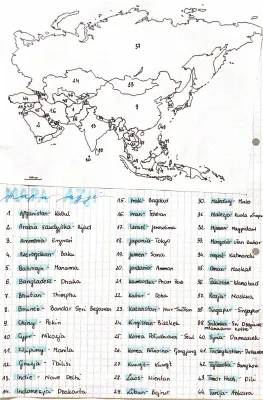 MAPA AZJI
1. Afganistan - Kabul
2. Arabia Saudyjska - Rijad
3. Armenia - Erywań
4. Azerbejdżan - Baku
5. Bahrajn - Manama
6. Bangladesz - Dhaka
7. Bhutan - Thimphu
8. Brunei - Bandar Seri Begawan
9. Chiny - Pekin
10. Cypr - Nikozja
11. Filipiny - Manila
12. Gruzja - Tbilisi
13. Indie - Nowe Delhi
14. Indonezja - Dżakarta
15. Irak - Bagdad
16. Iran - Teheran
17. Izrael - Jerozolima
18. Japonia - Tokyo
19. Jemen - Sana
20. Jordania - Amman
21. Kambodża - Phnom Penh
22. Katar - Doha
23. Kazachstan - Nur-Sułtan
24. Kirgistan - Biszkek
25. Korea Południowa - Seul
26. Korea Północna - Pjongjang
27. Kuwejt - Kuwejt
28. Laos - Wientian
29. Liban - Bejrut
30. Malediwy - Male
31. Malezja - Kuala Lumpur
33. Mongolia - Ułan Bator
34. Nepal - Katmandu
35. Oman - Maskat
36. Pakistan - Islamabad
37. Rosja - Moskwa
38. Singapur - Singapur
40. Syria - Damaszek
41. Tadżykistan - Duszanbe
42. Tajlandia - Bangkok
43. Timor Wsch. - Dili
44. Turcja - Ankara